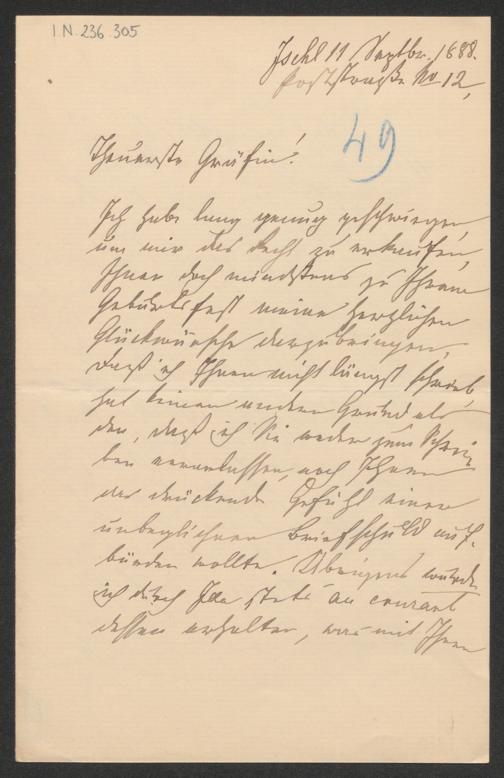 I.N. 236.305
Ischl 11 Septbr. 1888.
Poststraße No 12,
49
Theuerste Gräfin!
Ich habe lang genug geschwiegen,
um mir das Recht zu erkaufen,
Ihnen doch mindestens zu Ihrem
Geburtsfest meine herzlichen
Glückwünsche darzubringen,
Daß ich Ihnen nicht längst schrieb,
hat keinen andern Grund als
den, daß ich Sie weder zum Schrei-
ben veranlassen, noch Ihnen
das drückende Gefühl einer
unbeglichenen Briefschuld auf-
bürden wollte. Übrigens wurde
ich durch Ida stets au courant
dessen erhalten, was mit Ihnen